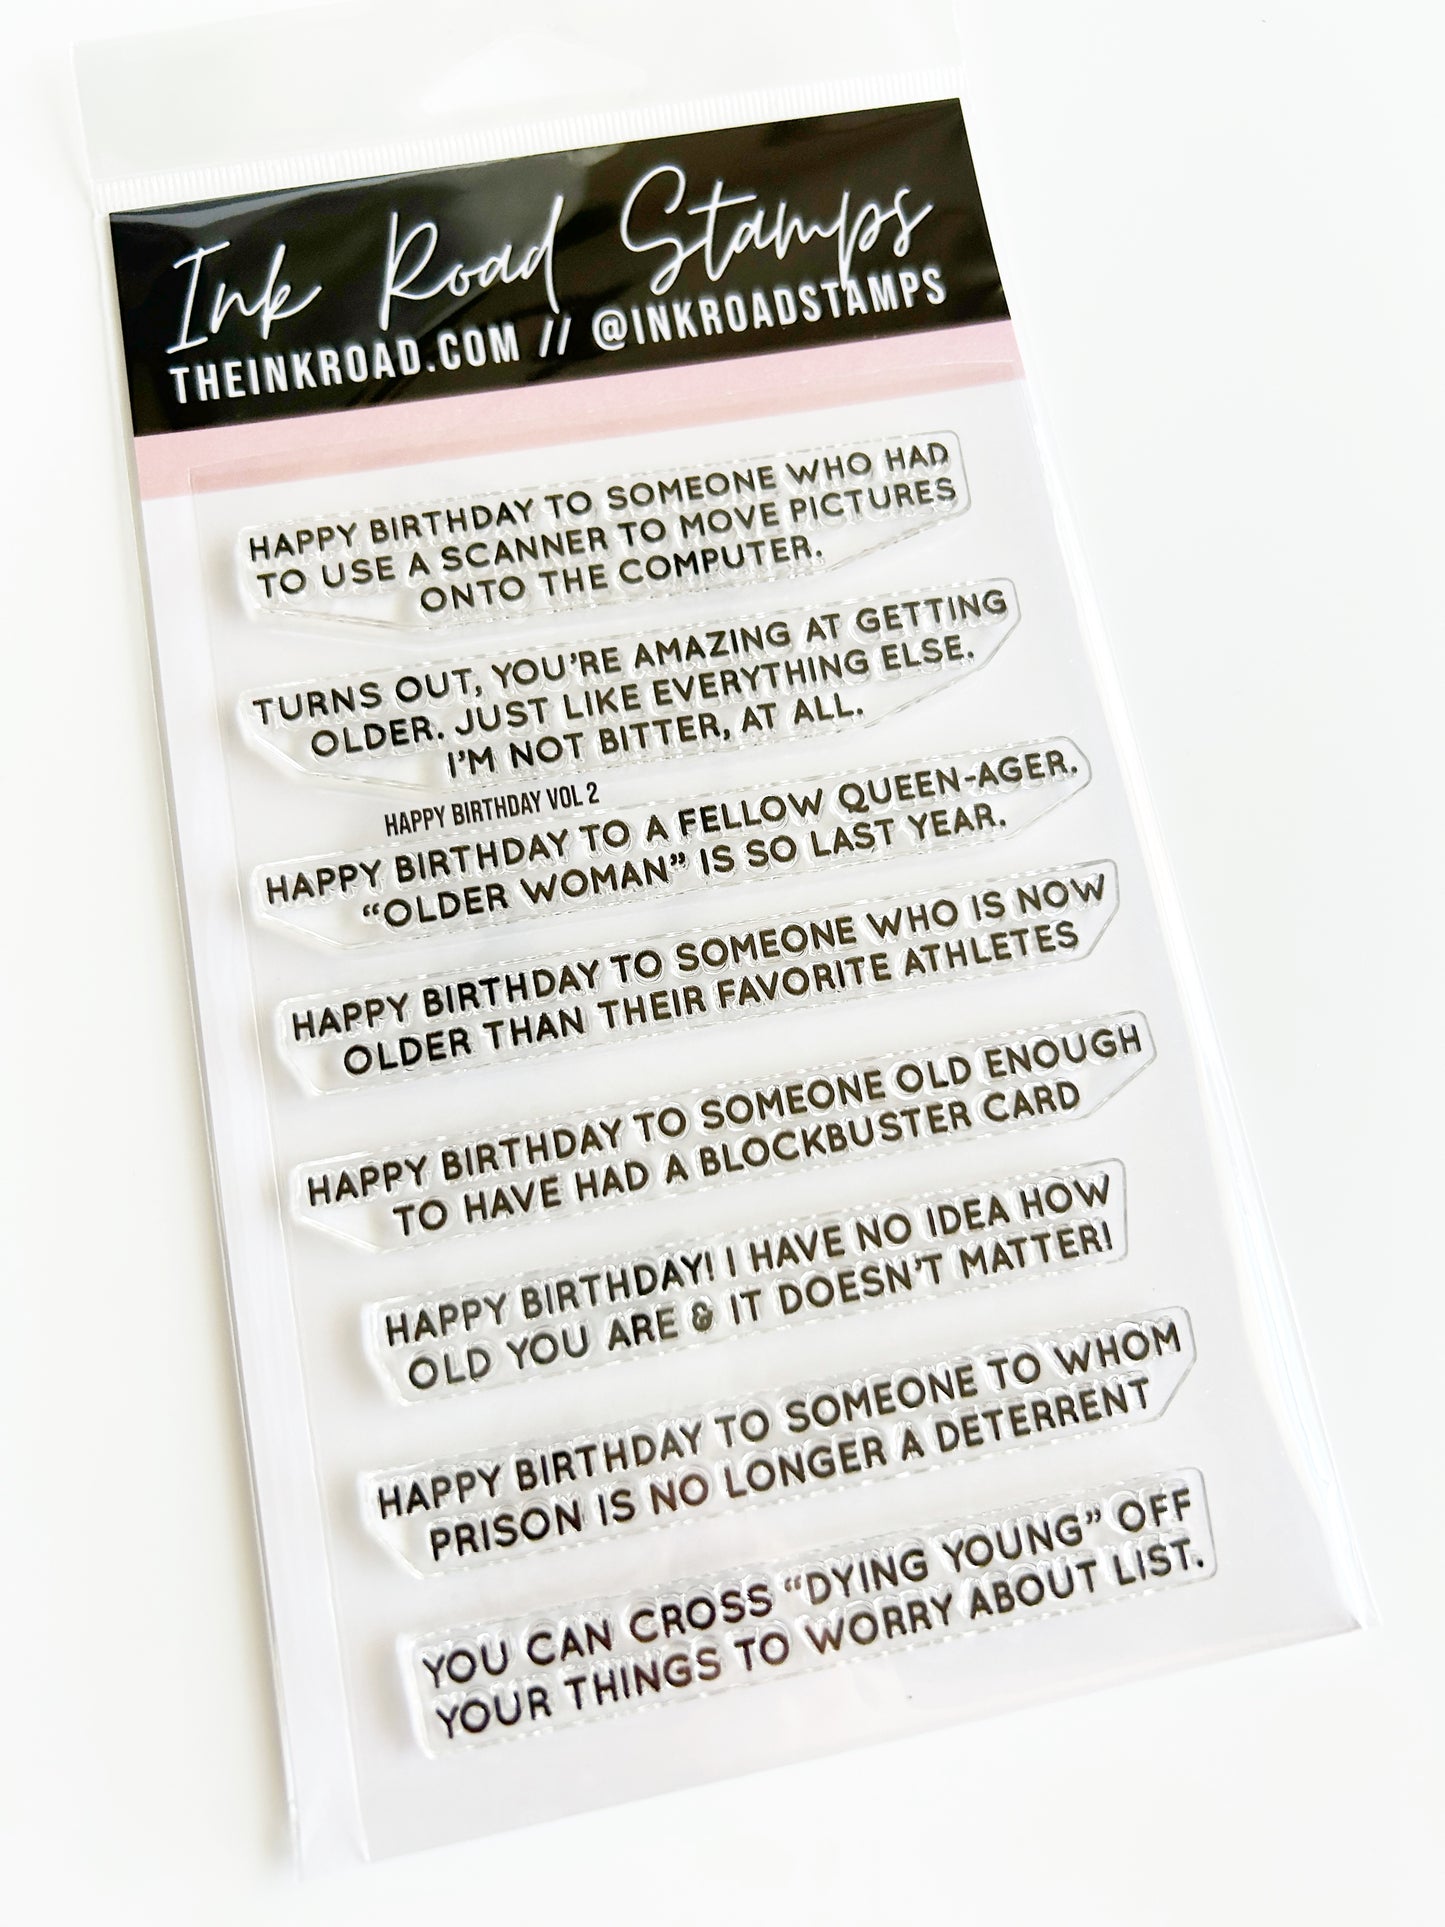 Ink Road Stamps
THEINKROAD.COM // @INKROADSTAMPS
HAPPY BIRTHDAY TO SOMEONE WHO HAD
TO USE A SCANNER TO MOVE PICTURES
ONTO THE COMPUTER.
TURNS OUT, YOU'RE AMAZING AT GETTING
OLDER. JUST LIKE EVERYTHING ELSE.
I'M NOT BITTER, AT ALL.
HAPPY BIRTHDAY VOL 2
HAPPY BIRTHDAY TO A FELLOW QUEEN-AGER.
“OLDER WOMAN” IS SO LAST YEAR.
HAPPY BIRTHDAY TO SOMEONE WHO IS NOW
OLDER THAN THEIR FAVORITE ATHLETES
HAPPY BIRTHDAY TO SOMEONE OLD ENOUGH
TO HAVE HAD A BLOCKBUSTER CARD
HAPPY BIRTHDAY! I HAVE NO IDEA HOW
OLD YOU ARE & IT DOESN'T MATTER!
HAPPY BIRTHDAY TO SOMEONE TO WHOM
PRISON IS NO LONGER A DETERRENT
YOU CAN CROSS “DYING YOUNG” OFF
YOUR THINGS TO WORRY ABOUT LIST.